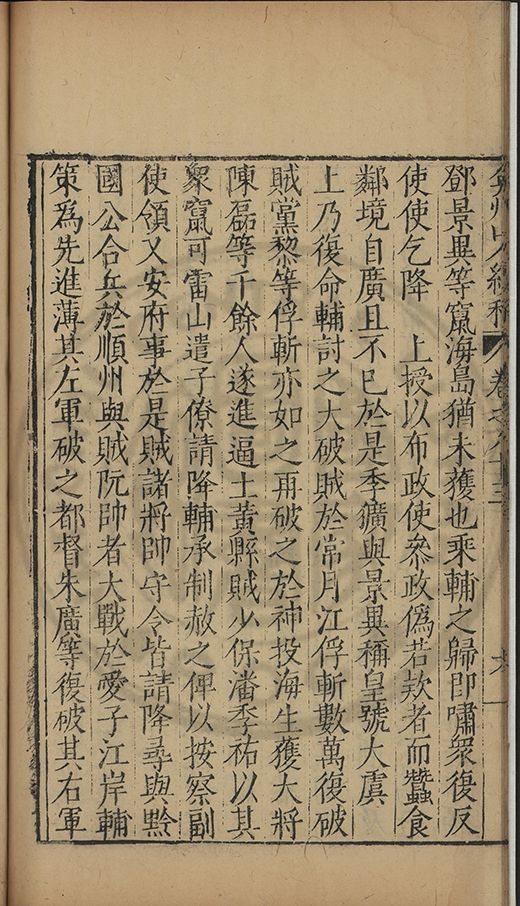 弇州山人續稿 卷之八十三 六
鄧景異等竄海島猶未獲也乘輔之歸即嘯衆復反
使使乞降 上授以布政使叅政偽若欵者而蠶食
鄰境自廣且不巳於是季獷與景異稱皇號大虞
上乃復命輔討之大破賊於常月江俘斬數萬復破
賊黨黎等俘斬亦如之再破之於神投海生獲大將
陳磊等千餘人遂進逼土黃縣賊少保潘季祐以其
衆竄可雷山遣子僚請降輔承制赦之俾以按察副
使領又安府事於是賊諸將帥守令皆請降尋與黔
國公合兵於順州與賊阮帥者大戰於愛子江岸輔
策爲先進薄其左軍破之都督朱廣等復破其右軍